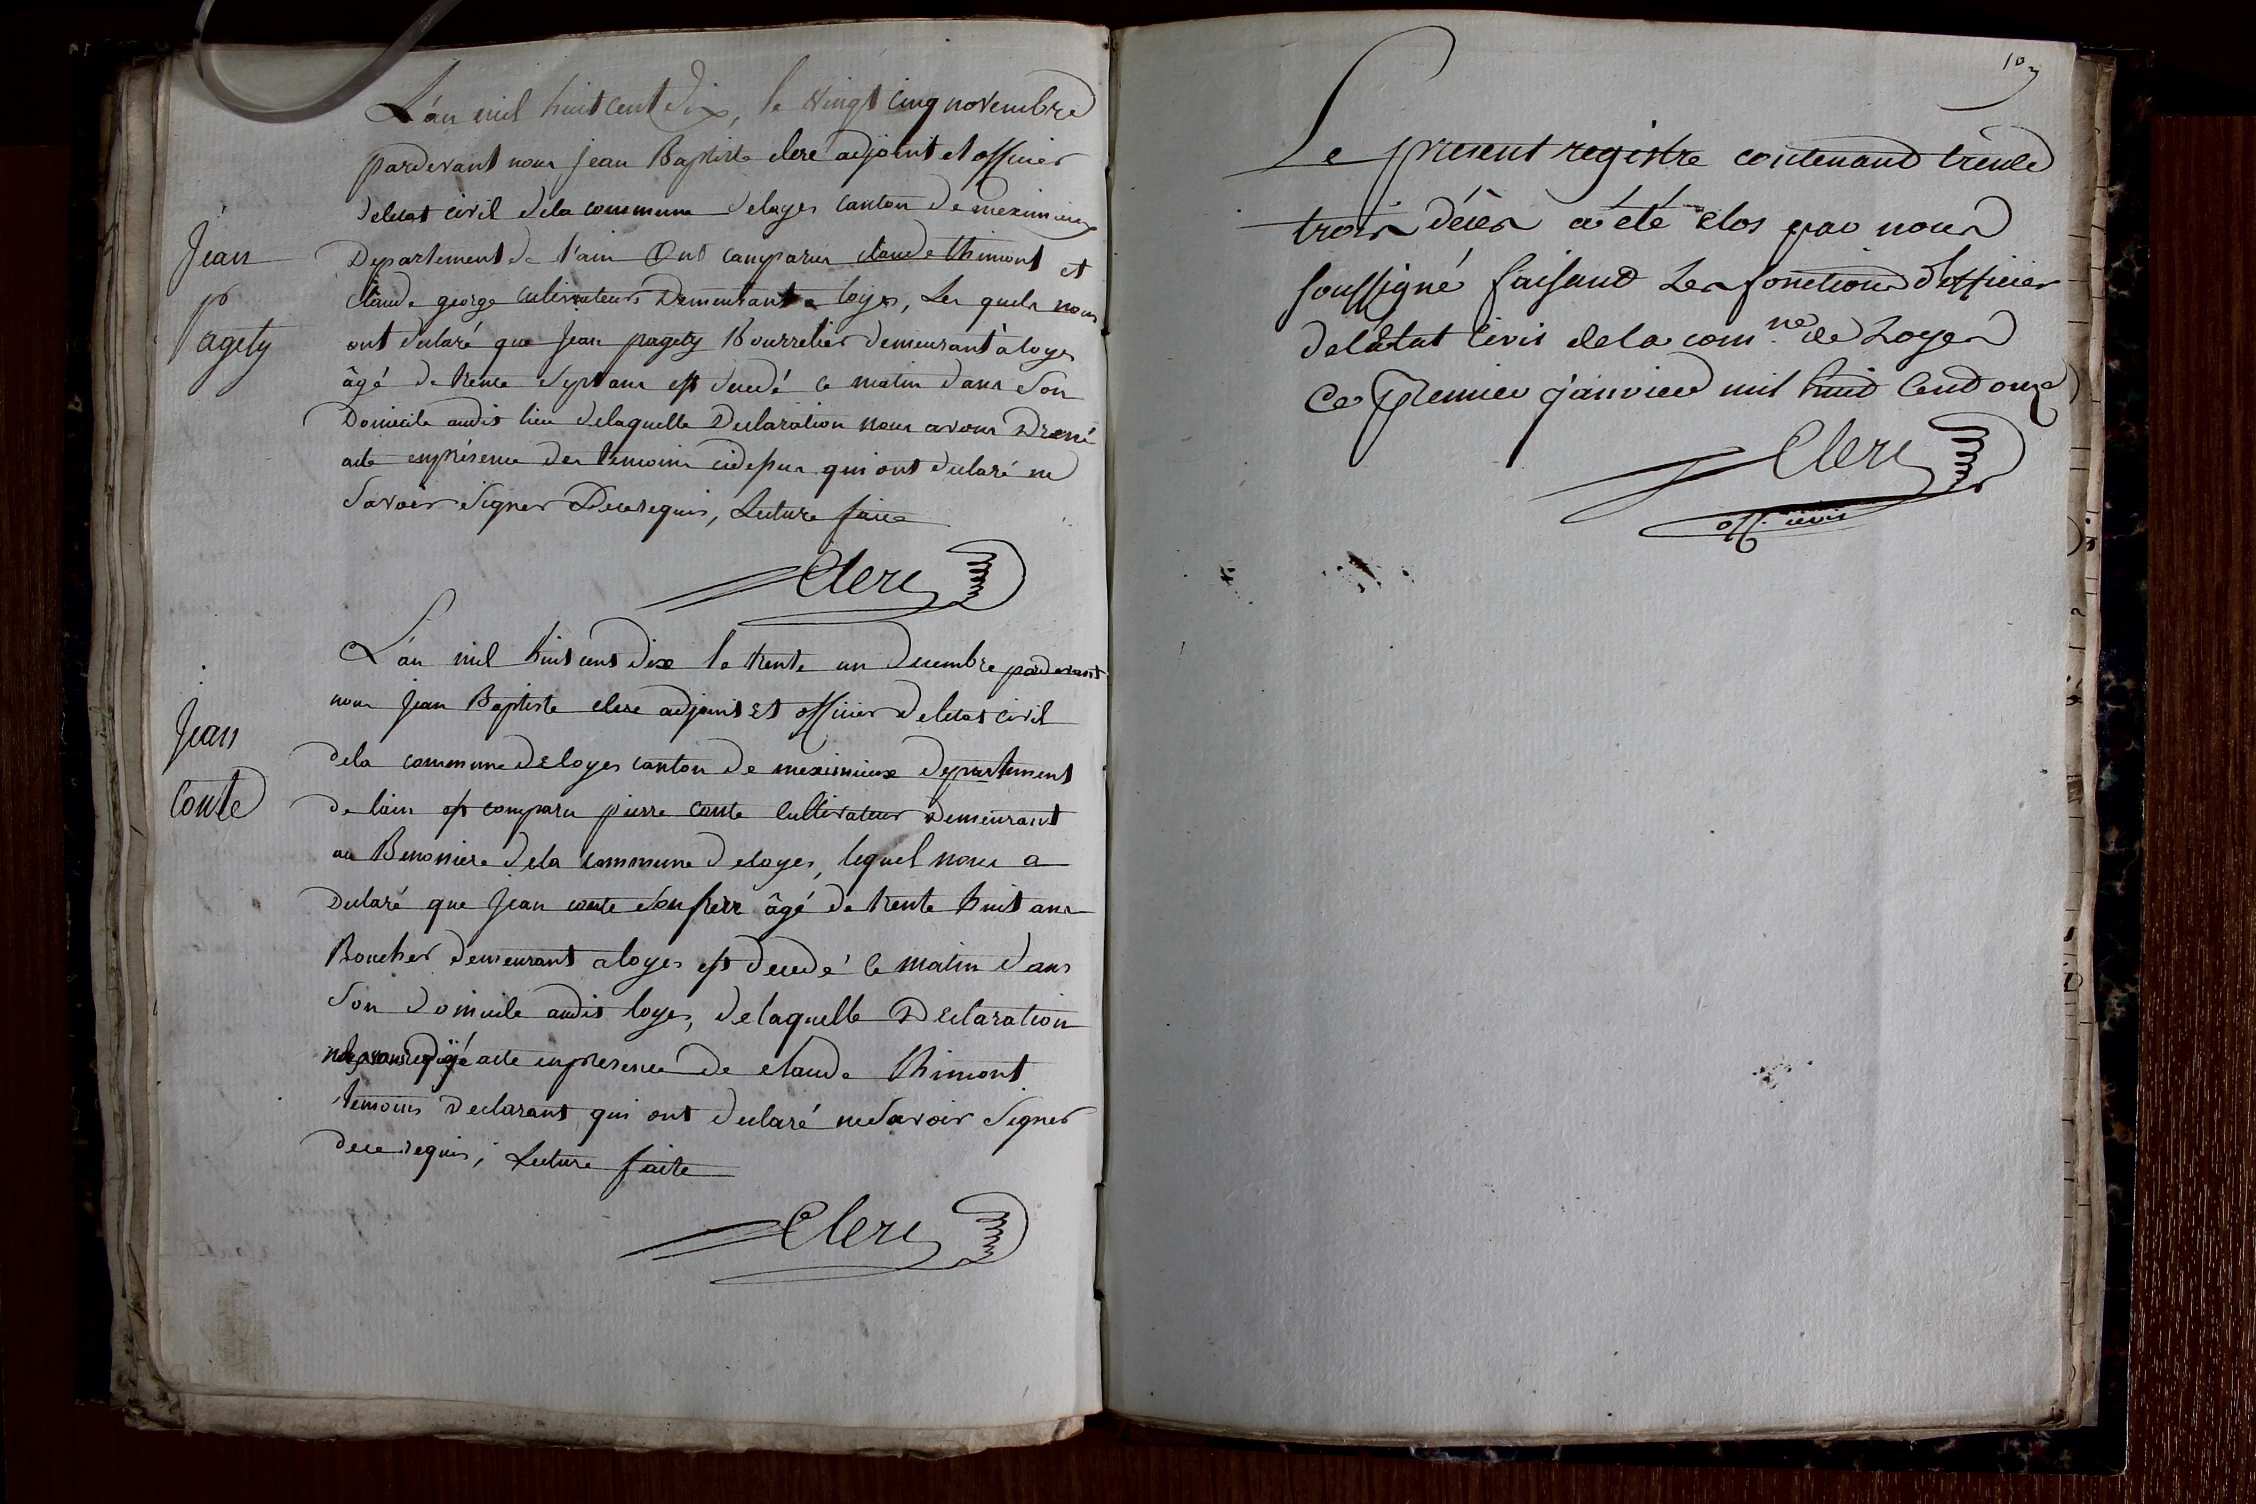 L'an mil huit cent dix, le vingt cinq novembre
pardevant nous jean Baptiste clerc adjoint et officier
deletat civil dela commune deloyes canton de meximieux
Departement de l'ain Ont comparus claude thimont et
claude george cultivateurs Demeurant a loyes, Les quels nous
ont declaré que jean pagety Bourrelier demeurant à loyes
âgé de trente sept ans est decedé ce matin dans son
Domicile audit lieu delaquelle Declaration nous avons Dressé
acte enprésence des temoins cidessus qui ont declaré ne
Savoir Signer Decerequis, Lecture faite
Clerc
Jean
pagety
L'an mil huit cent dix le trente un decembre pardevant
nous jean Baptiste clerc adjoint Et officier deletat civil
dela commune deloyes canton de meximieux departement
de lain est comparu pierre conte cultivateur Demeurant
au dela commune deloyes, lequel nous a
Declaré que jean conte son frere âgé de trente huit ans
Boucher demeurant a loyes est decedé ce matin dans
Son domicile audit loyes, delaquelle Declaration
acte enpresence de claude thimont
temoins Declarant qui ont declaré nesavoir Signer
decerequis, Lecture faite
Clerc
Jean
Conte
103
Le present registre contenant trente
trois décès a été clos par nous
soussigné faisant Les fonctions d'officier
deletat Civil dela com.ne de Loyes
Ce premier janvier mil huit Cent onze
Clerc
off. civil